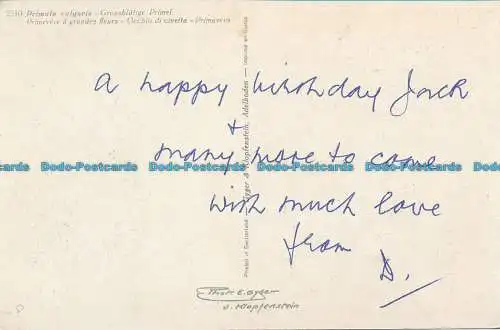 2510 Primula vulgaris - Grossblütige Primel
Primevère à grandes fleurs - Occhio di civetta - Primavera
A happy birthday Jack
+
many more to come
with much love
from
D.
Printed in Switzerland
Gyger & Klopfenstein, Adelboden
Dodo-Postcards Dodo-Postcards Dodo-Postcards Dodo-Postcards Dodo-Postcards
Phot. E. Gyger
A. Klopfenstein